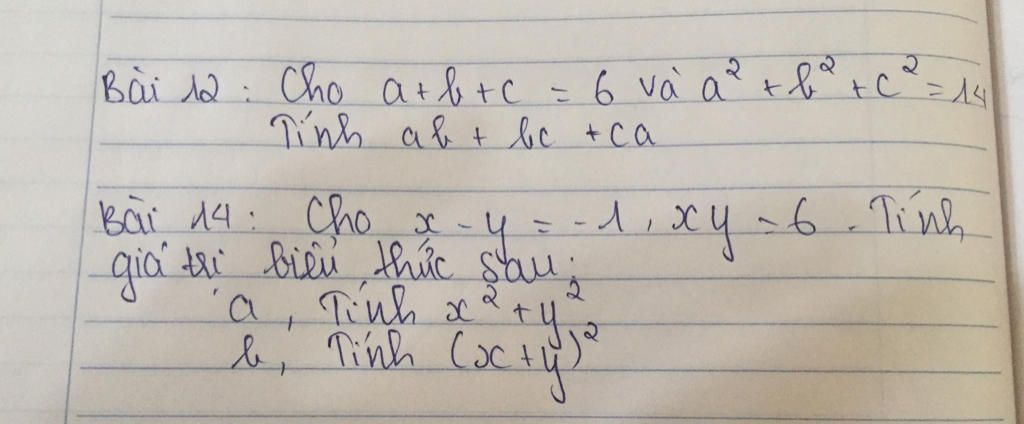 Bài 12 : Cho a + b + c = 6 và a² + b² + c² = 14
Tính ab + bc + ca
Bài 14 : Cho x - y = -1, xy = 6. Tính
giá trị biểu thức sau:
a, Tính x² + y²
b, Tính (x + y)²